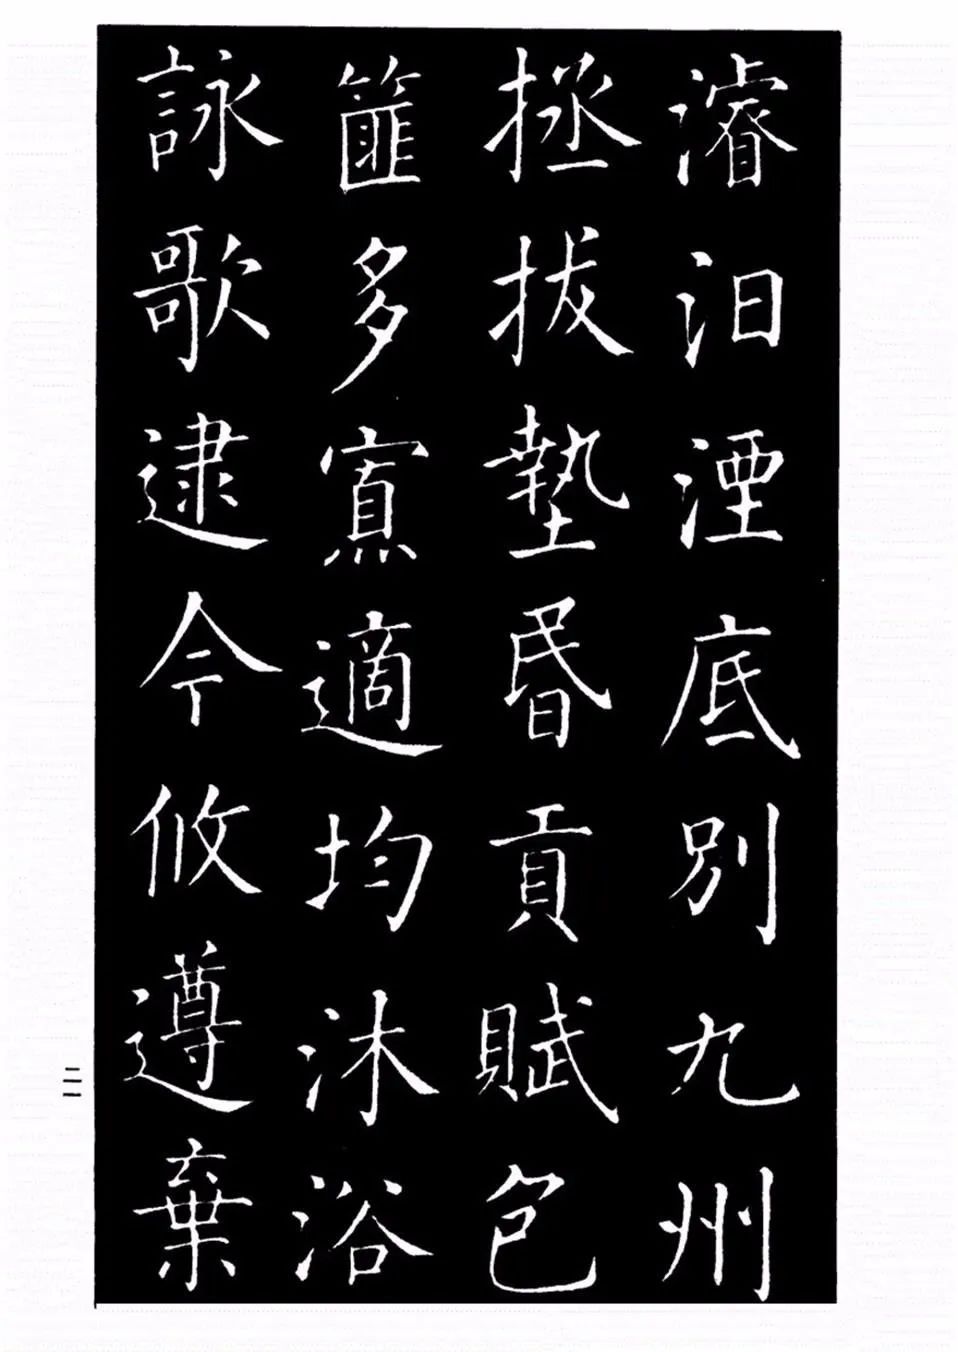 濬汨湮底別九州
拯拔墊昬貢賦包
篚多寡適均沐浴
詠歌逮今攸遵棄
二一